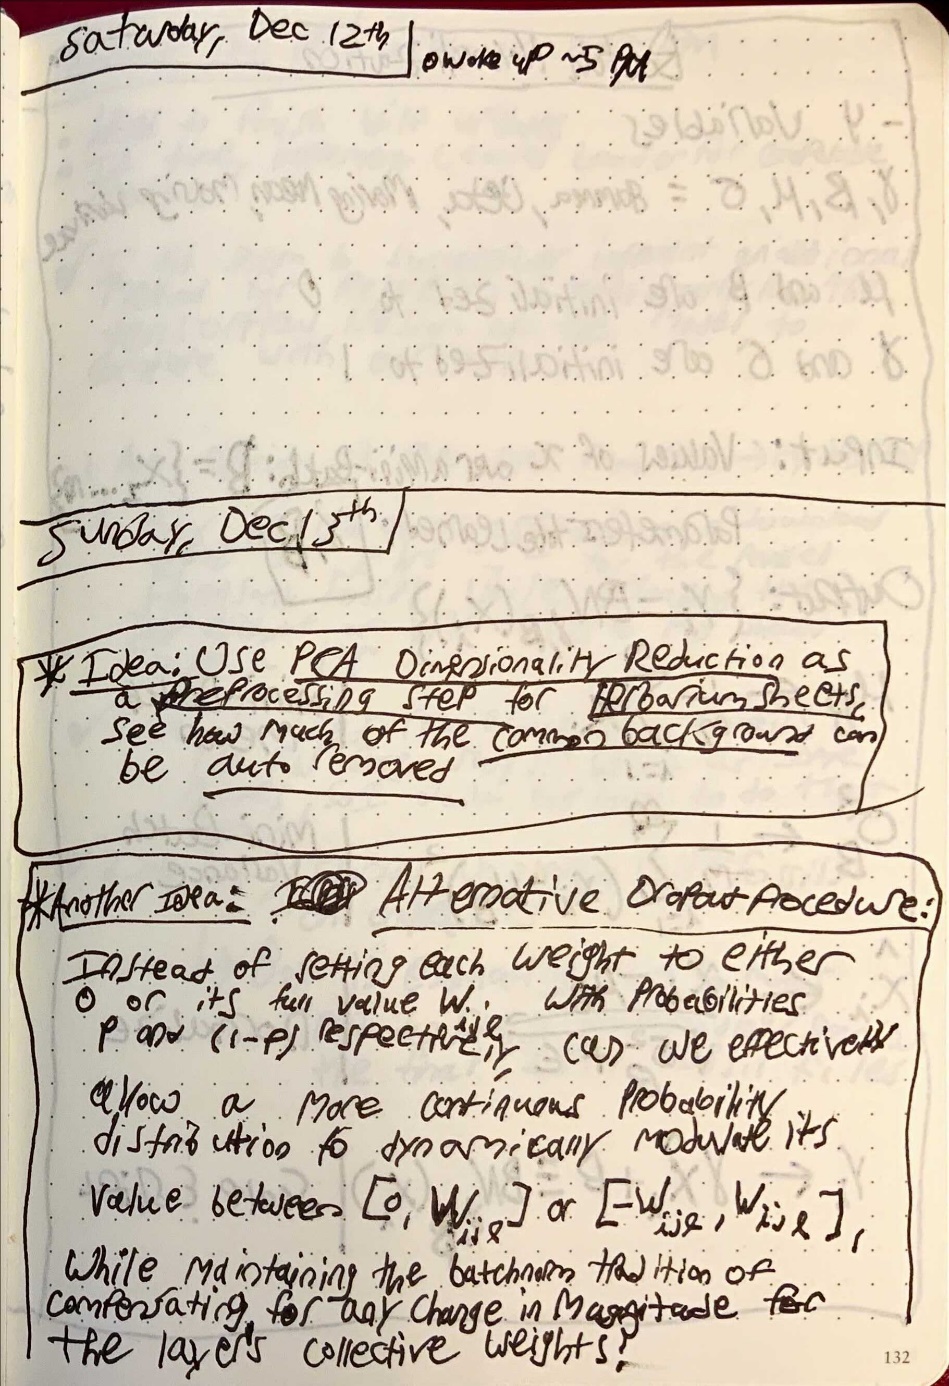 Saturday, Dec 12th
o woke up ~5 PM
Sunday, Dec 13th
* Idea: Use PCA Dimensionality Reduction as
a Preprocessing step for Herbarium sheets,
see how much of the common background can
be auto removed
* Another Idea: Alternative Dropout Procedure:
Instead of setting each weight to either
0 or its full value Wijl with probabilities
P and (1-P) respectively, can we effectively
allow a more continuous probability
distribution to dynamically modulate its
value between [0, Wijl] or [-Wijl, Wijl],
While maintaining the batchnorm tradition of
compensating for any change in Magnitude for
the layer's collective weights?
132